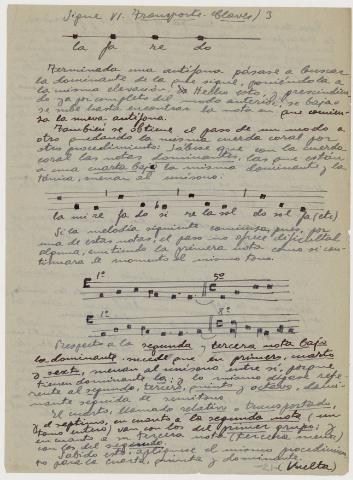 Sigue VI. Transporte. Claves) 3
la fa re do
Terminada una antífona pásase a buscar
la dominante de la que sigue, poniéndola a
la misma elevación. Hallado esto, y prescindien-
do ya por completo del modo anterior, se baja o
se sube hasta encontrar la nota en que comien-
za la nueva antífona.
También se obtiene el paso de un modo a
otro quedando la misma cuerda coral por
este procedimiento: Sábese que con la cuerda
coral las notas dominantes, las que están
a una cuarta bajo la misma dominante y la
tónica, suenan al unísono.
la mi re fa do si re la sol do sol fa (etc)
Si la melodía siguiente comienza, pues, por
una de estas notas, el paso no ofrece dificultad
alguna, emitiendo la primera nota como si con-
tinuara de momento el mismo tono.
1º 5º
1º 8º
Respecto a la segunda y tercera nota bajo
la dominante, sucede que en primero, cuarto
y sexto, suenan al unísono entre sí, porque
tienen dominante la; y lo mismo dígase refe-
rente al segundo, tercero, quinto y octavo, domi-
nante seguida de semitono.
El cuarto, llamado relativo o transportado,
y el septimo, en cuanto a la segunda nota (un
tono entero) van con los del primer grupo; y
en cuanto a tercera nota (tercera menor)
con los del segundo.
Sabido esto, aplíquese el mismo procedimien-
to para la cuarta, quinta y dominante.
(Vuelta)